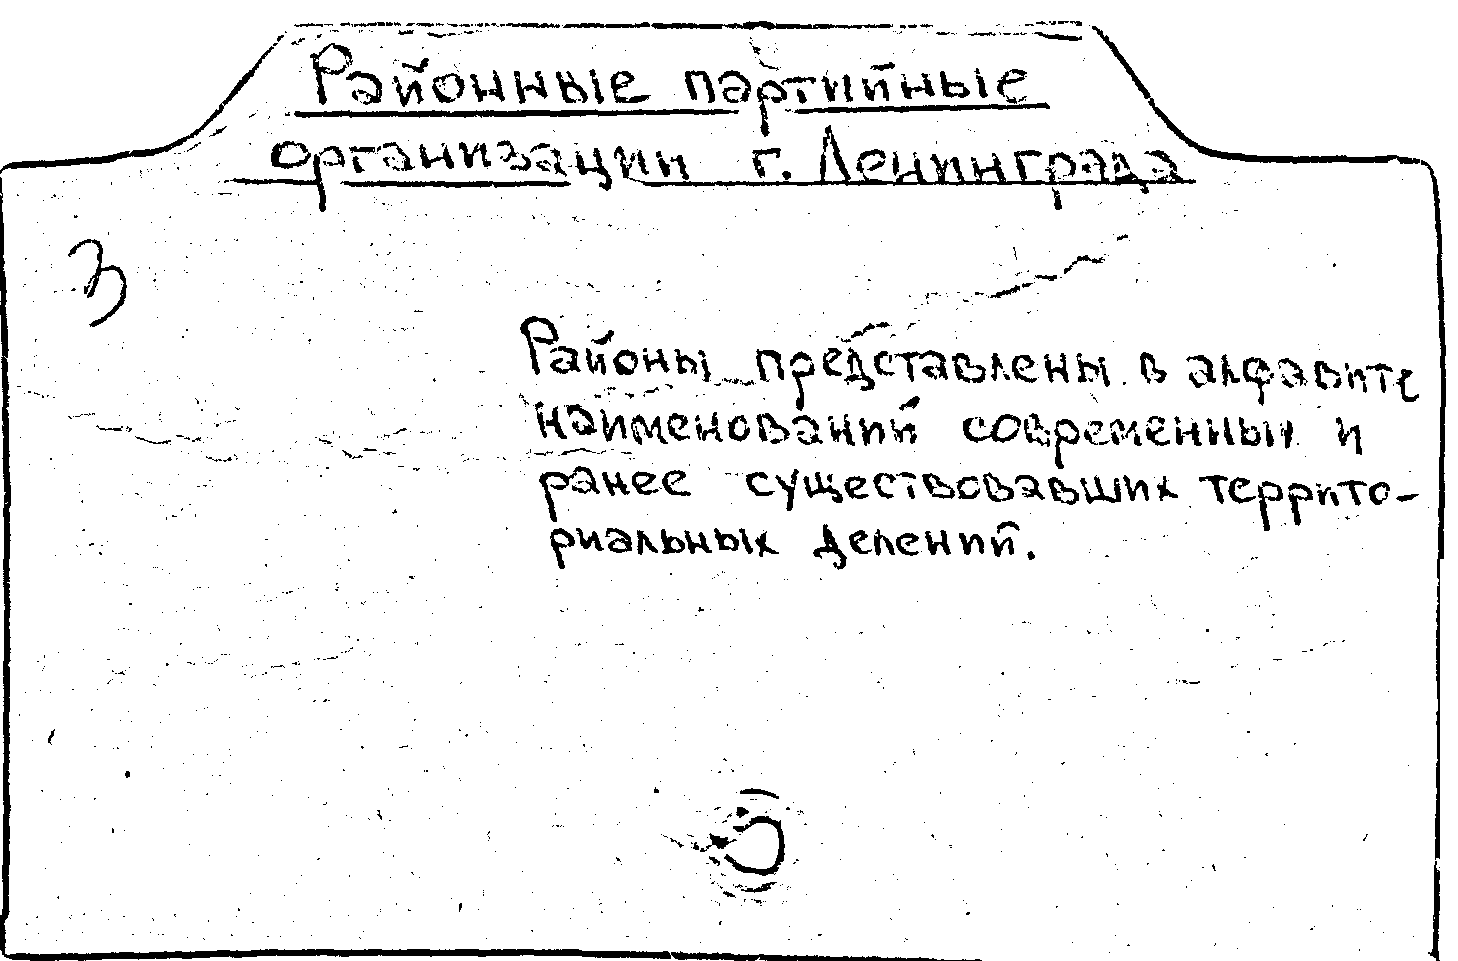 Районные партийные
организации г. Ленинграда
3
Районы представлены в алфавите
наименований современных и
ранее существовавших террито-
риальных делений.